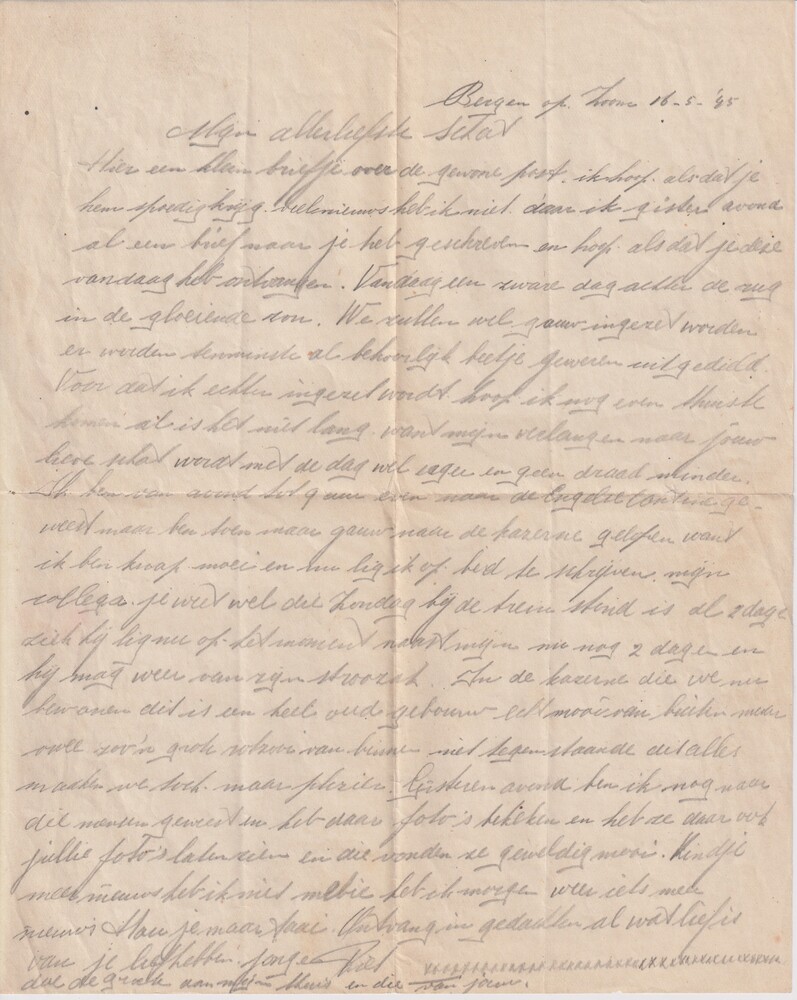 Bergen op Zoom 16-5-'45
Mijn allerliefste Schat
Hier een klein briefje over de gewone post. ik hoop als dat je
hem spoedig krijg. veel nieuws heb ik niet daar ik gister avond
al een brief naar je heb geschreven en hoop als dat je deze
vandaag heb ontvangen. Vandaag een zware dag achter de rug
in de gloeiende zon. We zullen wel gauw ingezet worden
er worden tenminste al behoorlijk beetje geweren uitgedeeld.
Voor dat ik echter ingezet wordt hoop ik nog even thuis te
komen al is het niet lang. want mijn verlangen naar jouw
lieve schat wordt met de dag wel erger en geen draad minder.
Ik ben van avond tot 9 uur even naar de Engelse Contine ge-
weest maar ben toen maar gauw naar de kazerne gelopen want
ik ben knap moei en nu lig ik op bed te schrijven. mijn
collega je weet wel die Zondag bij de trein stond is al 2 dage
ziek hij lig nu op het moment naast mijn nu nog 2 dagen en
hij mag weer van zijn strozak. In de kazerne die we nu
bewonen dit is een heel oud gebouw echt mooi van buiten maar
owee zoo'n grote rotzooi van binne niet tegenstaande dit alles
maken we toch maar plezier. Gisteren avond ben ik nog naar
die mensen geweest en heb daar foto's bekeken en heb ze daar ook
jullie foto's laten zien en die vonden ze geweldig mooi. Kindje
meer nieuws heb ik niet heb ik morgen weer iets meer
nieuws Hou je maar taai. Ontvang in gedachten al wat lief is
van je liefhebben jonge xxxxxxxxxxxxxxxxxxxxxxxxxxxxxx
doe de groete aan mijn thuis en die van jouw.